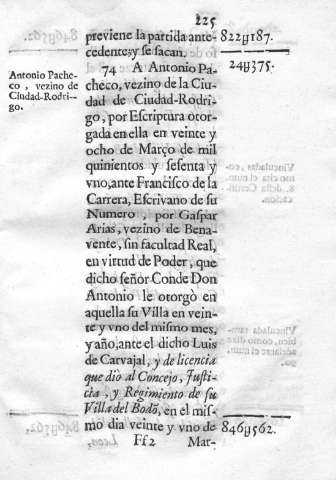 225
previene la partida ante-
cedente, y se sacan. 822y187.
74 A Antonio Pa- 24y375.
checo, vezino de la Ciu-
dad de Ciudad-Rodri-
go, por Escriptura otor-
gada en ella en veinte y
ocho de Março de mil
quinientos y sesenta y
vno, ante Francisco de la
Carrera, Escrivano de su
Numero, por Gaspar
Arias, vezino de Bena-
vente, sin facultad Real,
en virtud de Poder, que
dicho señor Conde Don
Antonio le otorgò en
aquella su Villa en vein-
te y vno del mismo mes,
y año, ante el dicho Luis
de Carvajal, y de licencia
que diò al Concejo, Justi-
cia, y Regimiento de su
Villa del Bodò, en el mis-
mo dia veinte y vno de 846y562.
Ff2 Mar-
Antonio Pache-
co, vezino de
Ciudad-Rodri-
go.